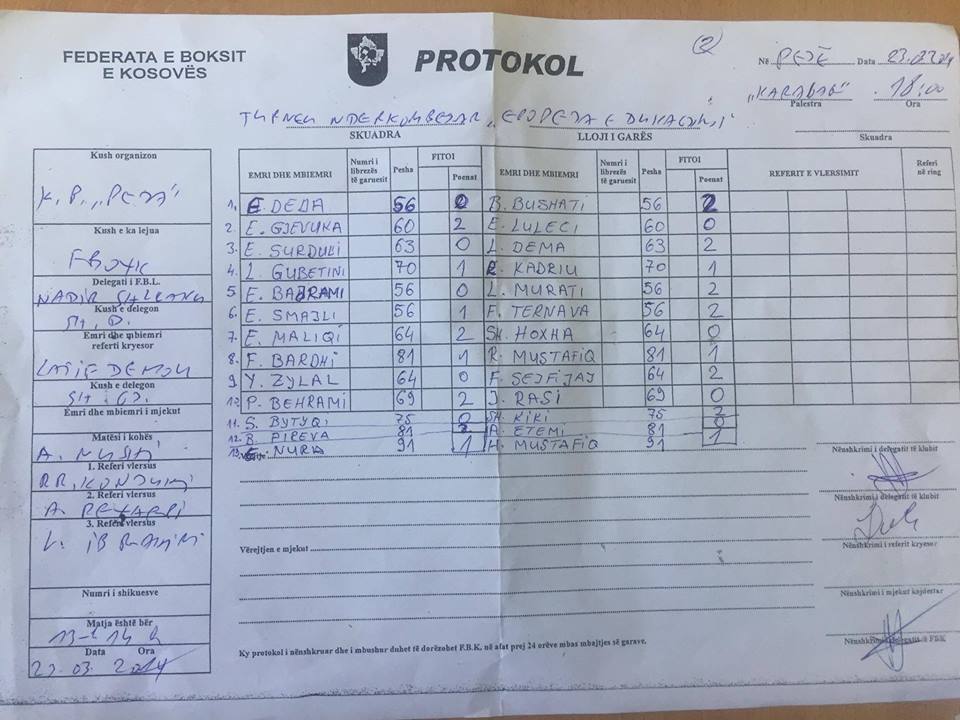 FEDERATA E BOKSIT
E KOSOVËS
PROTOKOL
(2)
Në PEJË Data
"KARABAG" 18:00
Palestra Ora
TURNEU NDERKOMBETAR "EPOPEJA E DUKAGJINIT"
SKUADRA LLOJI I GARËS Skuadra
Kush organizon
K.B. "PEJA"
Kush e ka lejua
FBOXK
Delegati i F.B.L.
NADIR
Kush e delegon
Emri dhe mbiemri
referti kryesor
DEMOLI
Kush e delegon
Emri dhe mbiemri i mjekut
Matësi i kohës
A.
1. Referi vlersus
RR.
2. Referi vlersus
A. REXHEPI
3. Referi vlersus
IBRAHIMI
Numri i shikuesve
Matja është bër
13-14 h
Data Ora
23.03.2014
EMRI DHE MBIEMRI Numri i librezës të garuesit Pesha FITOI Poenat EMRI DHE MBIEMRI Numri i librezës të garuesit Pesha FITOI Poenat REFERIT E VLERSIMIT Referi në ring
1. E. DEDA 56 0 B. BUSHATI 56 2
2. E. GJEVUKA 60 2 E. LULECI 60 0
3. E. SURDULI 63 0 L. DEMA 63 2
4. L. GUBETINI 70 1 R. KADRIU 70 1
5 E. BAJRAMI 56 0 L. MURATI 56 2
6. E. SMAJLI 56 1 F. TERNAVA 56 2
7. E. MALIQI 64 2 SH. HOXHA 64 0
8. F. BARDHI 81 1 R. MUSTAFIQ 81 1
9. Y. ZYLAL 64 0 F. SEJFIJAJ 64 2
10. P. BEHRAMI 69 2 J. RASI 69 0
11. S. BYTYQI 75 0 SH. KIKI 75 2
12. B. PIREVA 81 2 A. ETEMI 81 0
13. E. NURA 91 1 H. MUSTAFIQ 91 1
Vërejtje
Vërejtjen e mjekut
Nënshkrimi i delegatit të klubit
Nënshkrimi i delegatit të klubit
Nënshkrimi i referit kryesor
Nënshkrimi i mjekut kujdestar
Nënshkrimi i delegatit të FBK
Ky protokol i nënshkruar dhe i mbushur duhet të dorëzohet F.B.K. në afat prej 24 orëve mbas mbajtjes së garave.